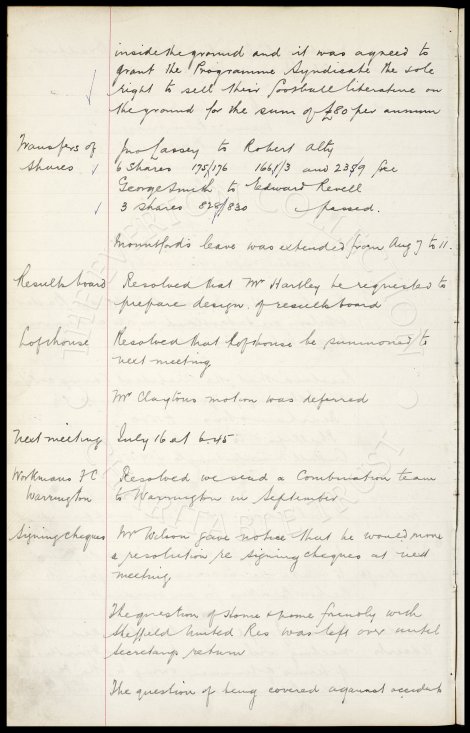 inside the ground and it was agreed to
grant the Programme Syndicate the sole
right to sell their football literature on
the ground for the sum of £80 per annum
Transfers of Jno Lassey to Robert Alty
Shares 6 Shares 175/176 166 1/3 and 2359
George Smith to Edward Revell
3 shares 828/830 passed.
Mountford's leave was extended from Aug 7 to 11.
Results board Resolved that Mr Hartley be requested to
prepare design of results board
Lofthouse Resolved that Lofthouse be summoned to
next meeting
Mr Claytons motion was deferred
Next meeting July 16 at 6.45
Workmans FC Resolved we send a Combination team
Warrington to Warrington in September
Signing cheques Mr Wilson gave notice that he would move
a resolution re signing cheques at next
meeting
The question of Home & home friendly with
Sheffield United Res was left over until
Secretarys return
The question of being covered against accidents